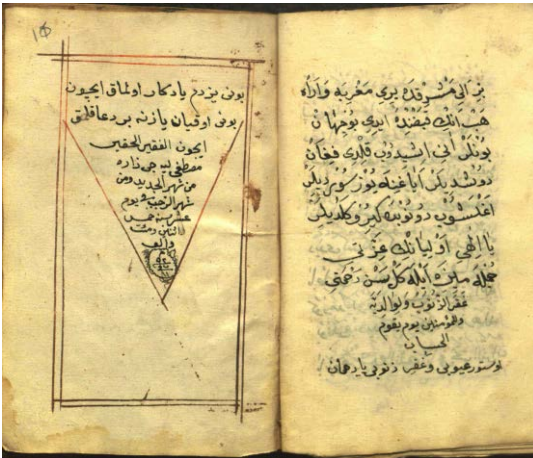 بر الى مشرقده برى مغربه واراه
هب انك قبضنده ايدى بوجهان
بونلر آنى اشيدوب قلدى فغان
دوشديلر اياغنه يوز سورديلر
اغلشوب كيرو كلديلر
يا الهى اوليانك عزتى
جمله مزه ايله كل سن رحمتى
غفر الذنوب ولوالديه
وللمؤمنين يوم يقوم
الحساب
وستور عيوبى وغفر ذنوبى يا رحمان
بونى يزدم يادكار اولماق ايچيون
بونى اوقيان يازنه بر دعا قلق
ايچون الفقير الحقير
مصطفى زاده
من شهر الجديد ومن
شهر الرجب ويوم
عشر سنه خمس
ثلاثين ومئت
والف